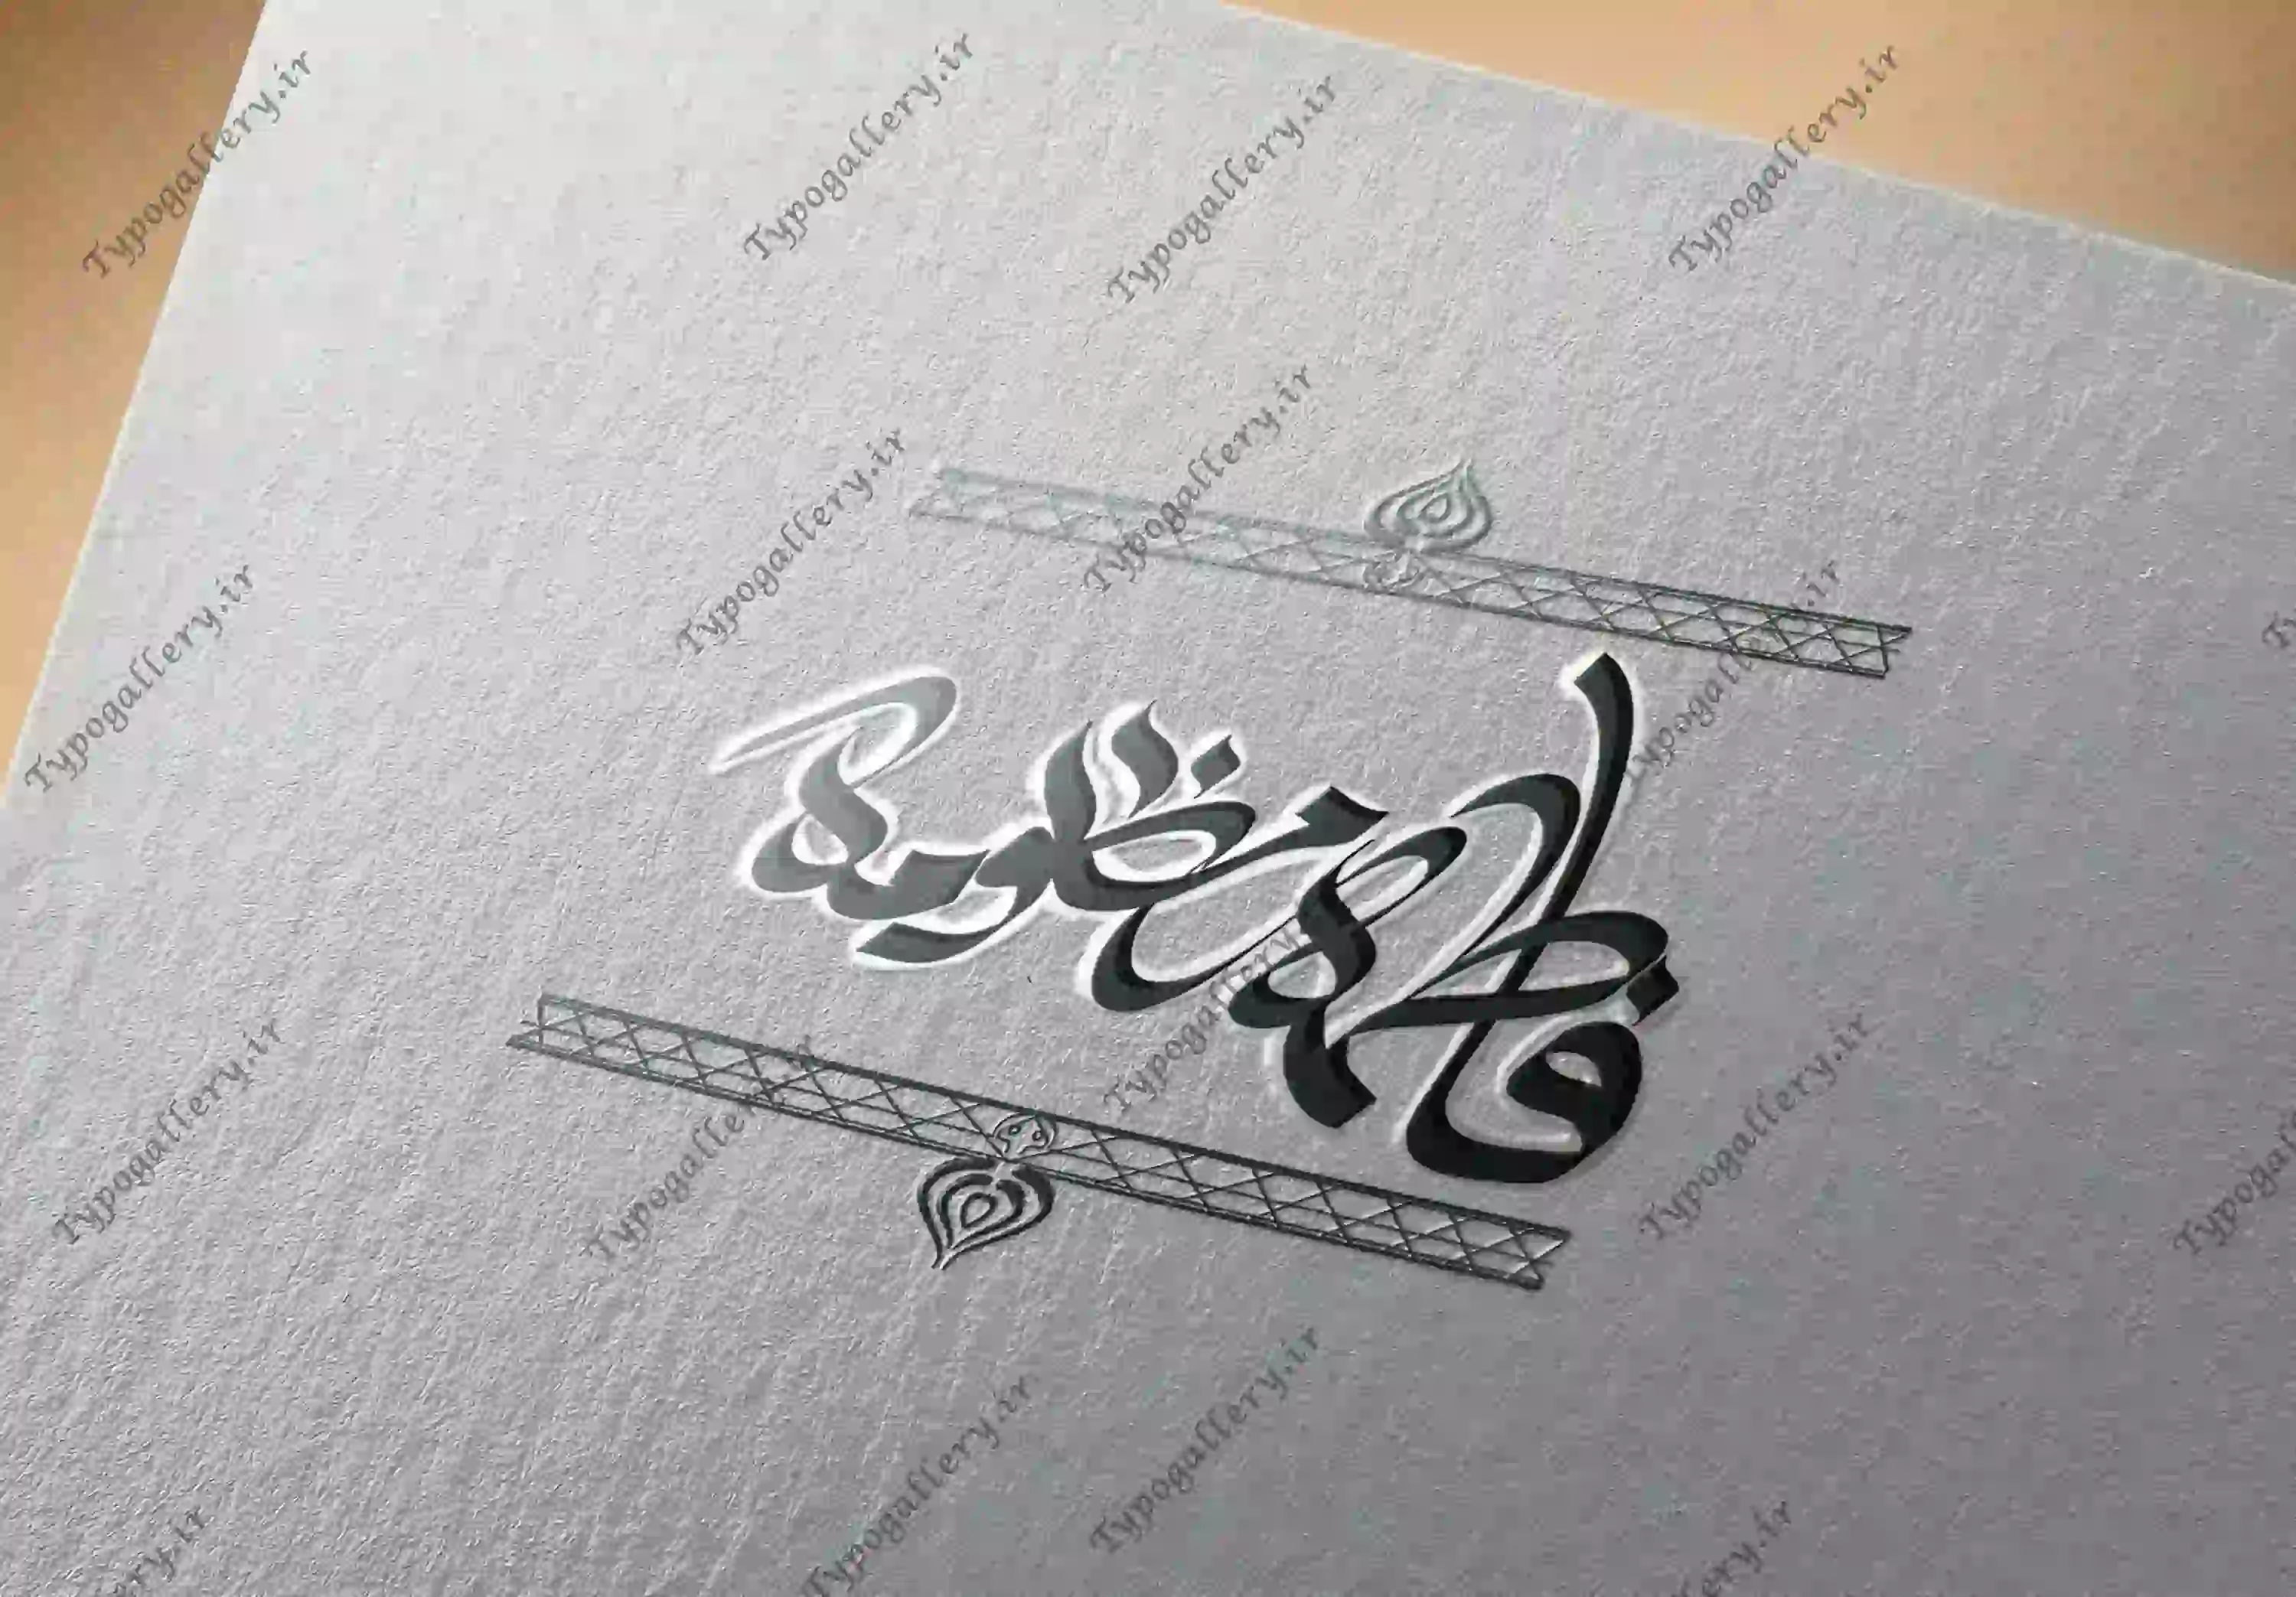 Typogallery.ir
Typogallery.ir
Typogallery.ir
Typogallery.ir
Typogallery.ir
Typogallery.ir
Typogallery.ir
Typogallery.ir
فاطمه مظلومه
Typogallery.ir
Typogallery.ir
Typogallery.ir
Typogallery.ir
Typogallery.ir
Typogallery.ir